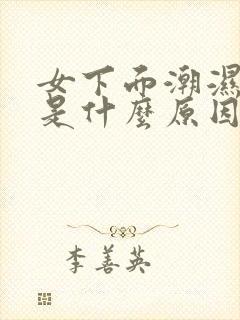 女下而潮濕
是什麼原因
李善英